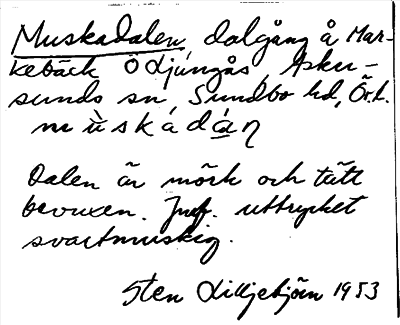 Muskadalen, dalgång å Mar-
kebäck Ö Djungås, Asker-
sunds sn, Sundbo hd, Ör.l.
Dalen är mörk och tätt
bevuxen. Jmf. uttrycket
svartmuskig.
Sten Lilljebjörn 1953